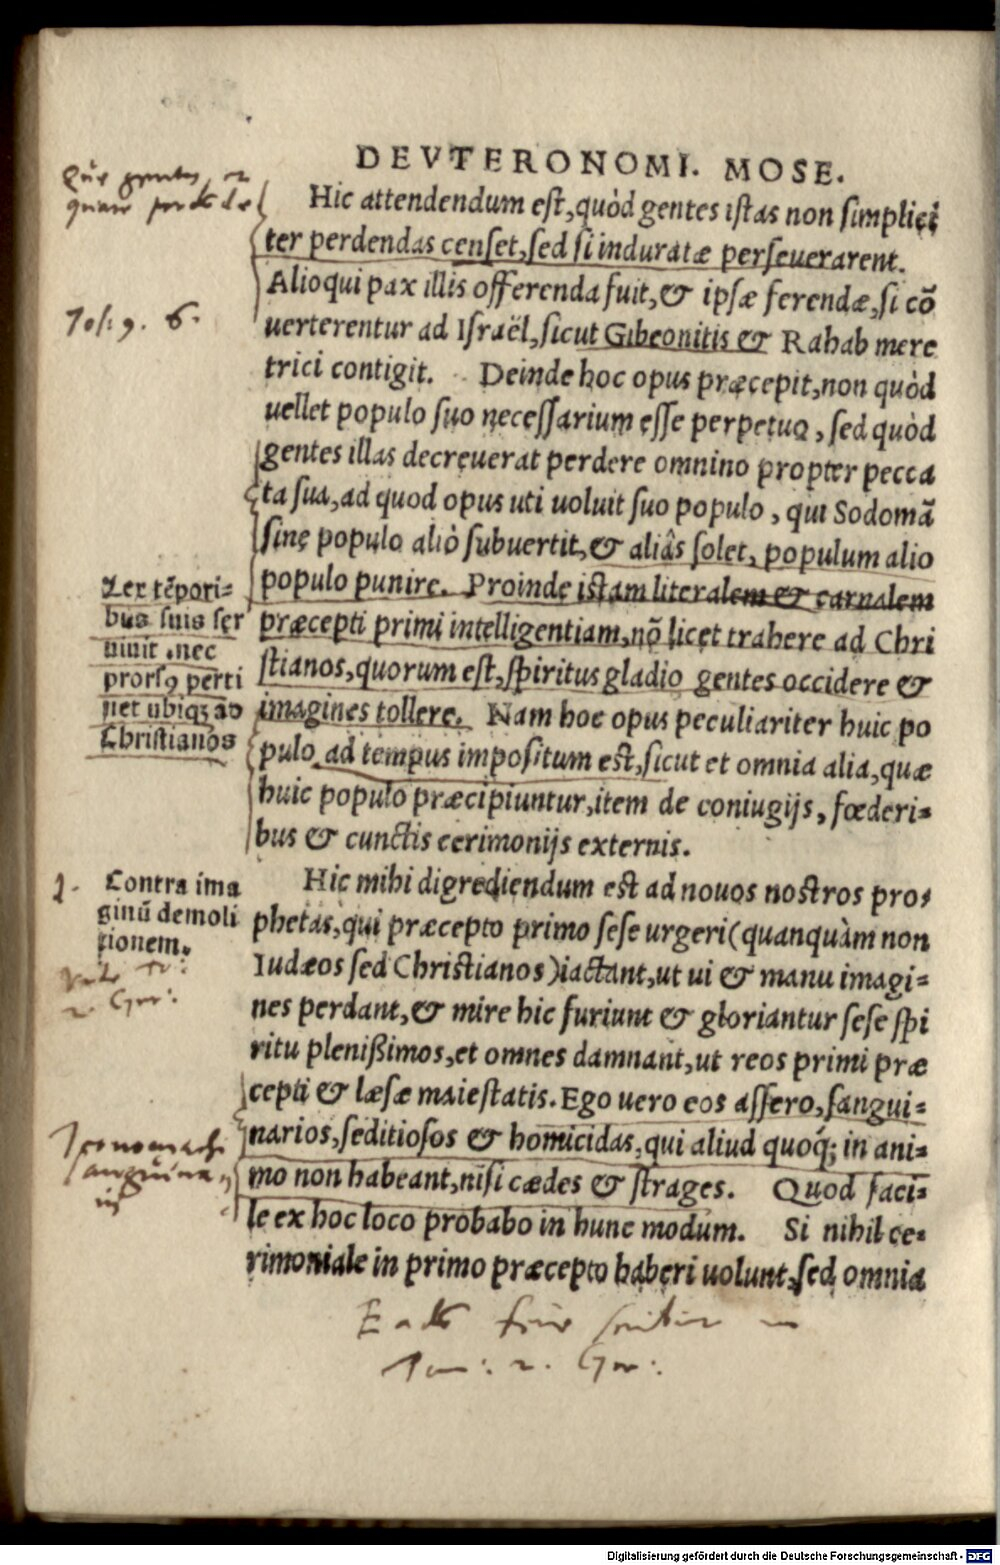 DEVTERONOMI. MOSE.
Hic attendendum est, quòd gentes istas non simplici
ter perdendas censet, sed si induratæ perseuerarent.
Alioqui pax illis offerenda fuit, & ipsæ ferendæ, si cō
uerterentur ad Israël, sicut Gibeonitis & Rahab mere
trici contigit. Deinde hoc opus præcepit, non quòd
uellet populo suo necessarium esse perpetuo, sed quòd
gentes illas decreuerat perdere omnino propter pecca
ta sua, ad quod opus uti uoluit suo populo, qui Sodomā
sine populo alio subuertit, & aliâs solet, populum alio
populo punire. Proinde istam literalem & carnalem
præcepti primi intelligentiam, nō licet trahere ad Chri
stianos, quorum est, spiritus gladio gentes occidere &
imagines tollere. Nam hoc opus peculiariter huic po
pulo ad tempus impositum est, sicut et omnia alia, quæ
huic populo præcipiuntur, item de coniugijs, fœderi=
bus & cunctis cerimonijs externis.
Hic mihi digrediendum est ad nouos nostros pro=
phetas, qui præcepto primo sese urgeri (quanquàm non
Iudæos sed Christianos) iactant, ut ui & manu imagi=
nes perdant, & mire hic furiunt & gloriantur sese spi
ritu plenißimos, et omnes damnant, ut reos primi præ
cepti & læsæ maiestatis. Ego uero eos assero, sangui=
narios, seditiosos & homicidas, qui aliud quoq; in ani=
mo non habeant, nisi cædes & strages. Quod faci=
le ex hoc loco probabo in hunc modum. Si nihil ce=
rimoniale in primo præcepto haberi uolunt, sed omnia
quare
Ios: 9. 6.
Lex tēpori=
bus suis ser
uiuit, nec
prorsꝰ perti
net ubiqꝫ ad
Christianos
1. Contra ima
ginū demoli
tionem.
2. Ger:
Iconomachi
sanguinarij
Tom: 2. Ger:
Digitalisierung gefördert durch die Deutsche Forschungsgemeinschaft - DFG